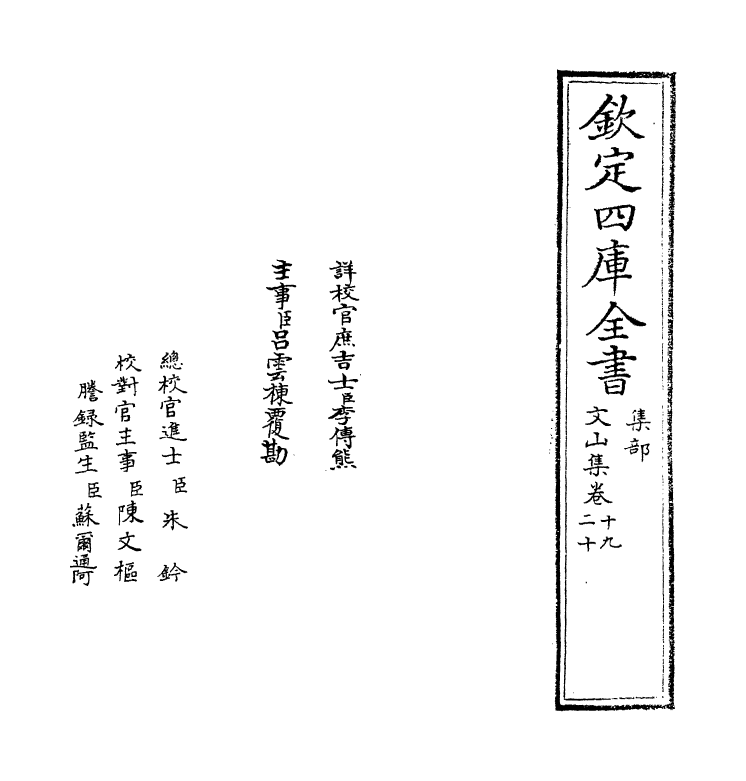 欽定四庫全書
集部
文山集卷十九
二十
詳校官庶吉士臣李傳熊
主事臣呂雲棟覆勘
總校官進士臣朱鈐
校對官主事臣陳文樞
謄録監生臣蘇爾通阿